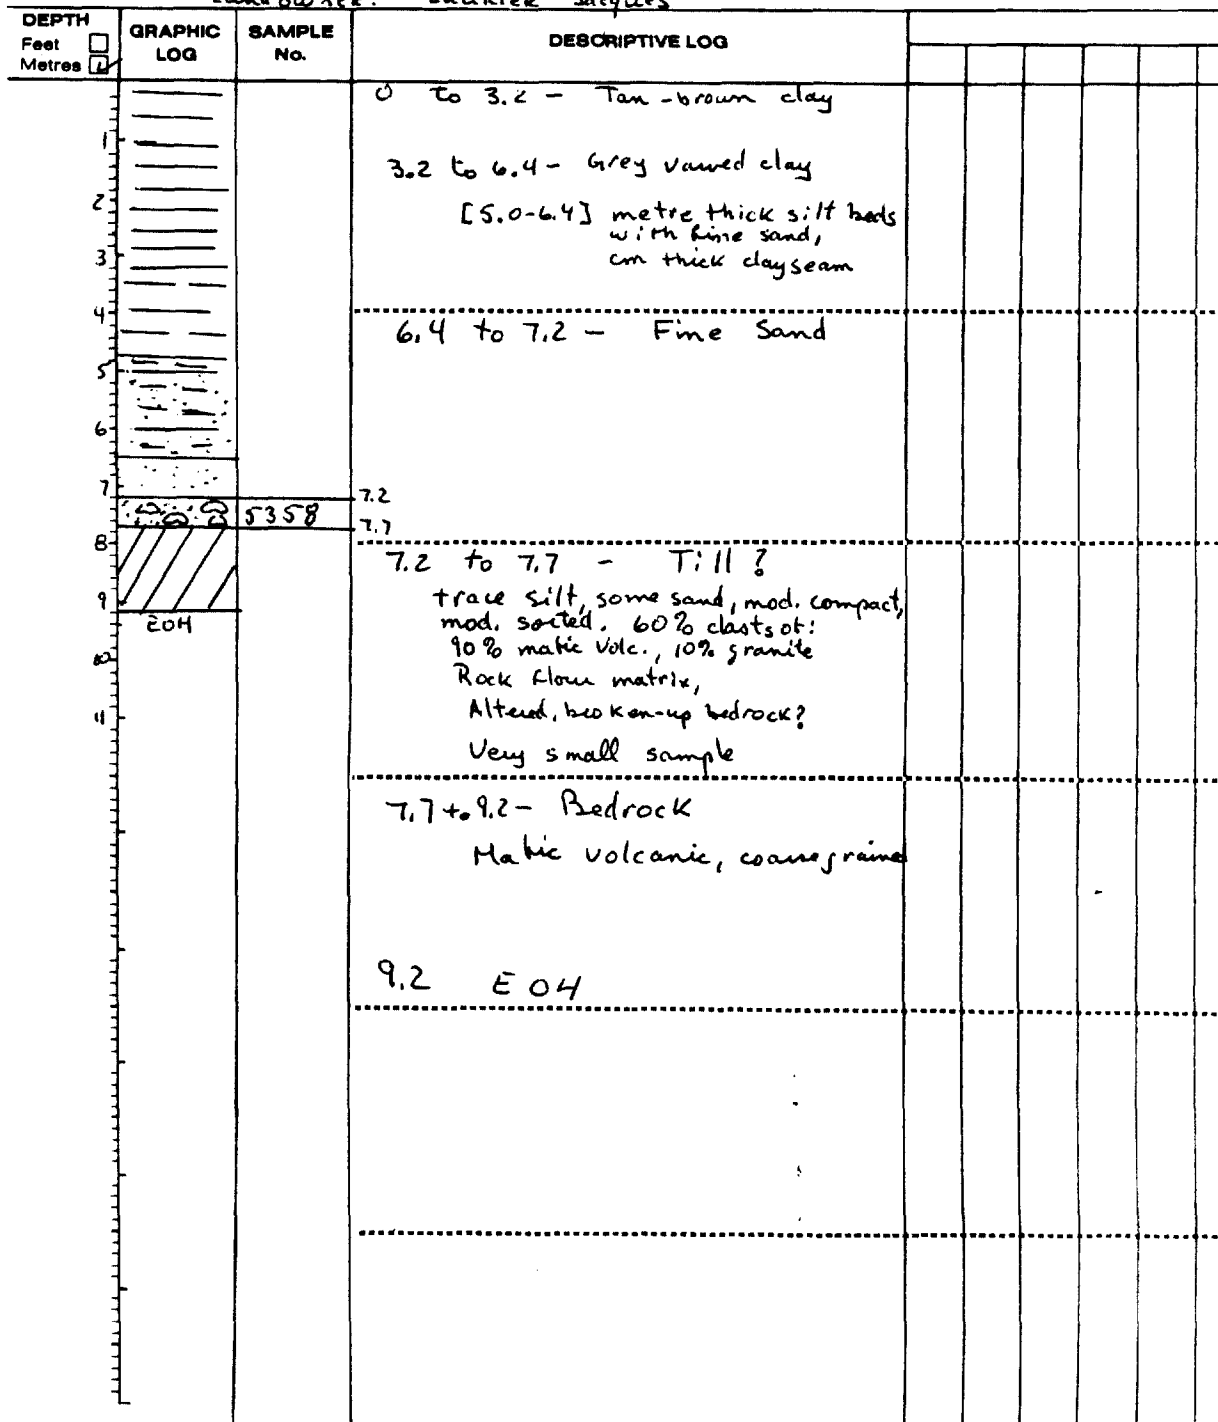 DEPTH
Feet
Metres
GRAPHIC LOG
SAMPLE No.
DESCRIPTIVE LOG
0 to 3.2 - Tan-brown clay
1
3.2 to 6.4 - Grey varved clay
2
[5.0-6.4] metre thick silt beds
with fine sand,
3
cm thick clay seam
4
6.4 to 7.2 - Fine Sand
5
6
7
7.2
5358
7.7
8
7.2 to 7.7 - Till?
9
trace silt, some sand, mod. compact,
EOH
mod. sorted. 60% clasts of:
90% mafic volc., 10% granite
10
Rock flour matrix,
11
Altered, broken-up bedrock?
Very small sample
7.7 to 9.2 - Bedrock
Mafic volcanic, coarse graine
9.2 EOH